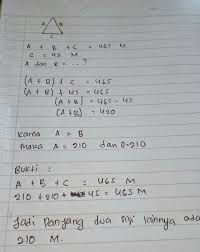 A B
C
A + B + C = 465 M
C = 45 M
A dan B = ...?
(A + B) + C = 465
(A + B) + 45 = 465
(A + B) = 465 - 45
(A + B) = 420
Karna A = B
Maka A = 210 dan B = 210
Bukti :
A + B + C = 465 M
210 + 210 + 45 = 465 M
Jadi Panjang dua sisi lainnya ada
210 M.